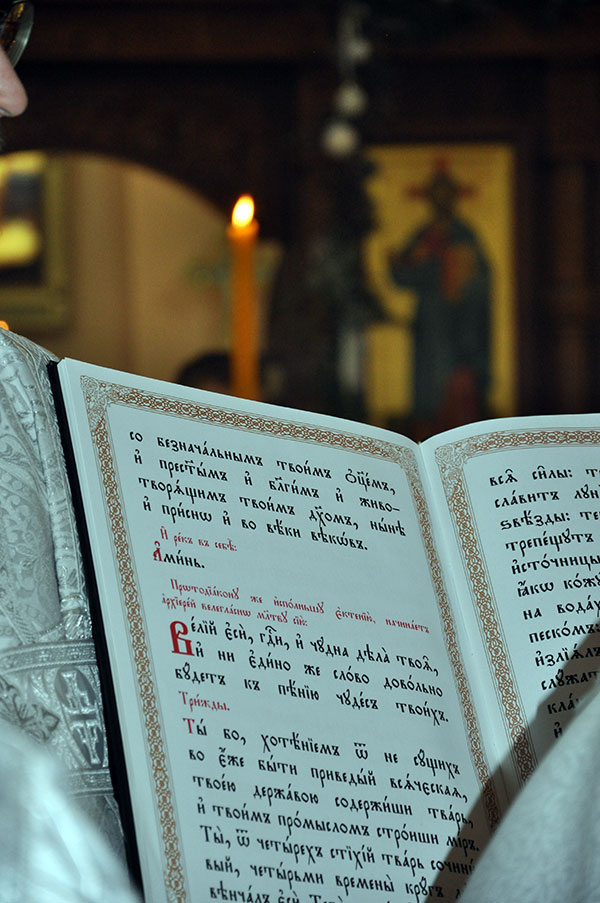 со безнача́льнымъ твои́мъ ѻ҆ц҃е́мъ,
и҆ прест҃ы́мъ и҆ бл҃ги́мъ и҆ живо-
творѧ́щимъ твои́мъ дх҃омъ, ны́нѣ
и҆ при́снѡ и҆ во вѣ́ки вѣкѡ́въ.
И҆ ре́къ въ себѣ̀:
А҆ми́нь.
Прѡтодїа́кону же и҆спо́лньшу є҆ктенїѝ, начина́етъ
а҆рхїере́й велегла́снѡ мл҃тву сїю̀:
Ве́лїй є҆сѝ, гдⷭ҇и, и҆ чу̑дна дѣла̀ твоѧ̑,
и҆ ни є҆ди́но же сло́во дово́льно
бу́детъ къ пѣ́нїю чуде́съ твои́хъ.
Три́жды.
Ты́ бо, хотѣ́нїемъ ѿ не су́щихъ
во є҆́же бы́ти приведы́й всѧ́ческаѧ,
твое́ю держа́вою содержи́ши тва́рь,
и҆ твои́мъ про́мысломъ стро́иши мі́ръ.
Ты̀, ѿ четы́рехъ стїхі́й тва́рь сочини́-
вый, четы́рьми времены̀ кру́гъ
вѣнча́лъ є҆сѝ.
всѧ̑ си̑лы:
сла́витъ
ѕвѣ́зды:
трепе́щутъ
и҆сто́чницы
ꙗ҆́кѡ ко́жу
на вода́хъ
песко́мъ:
и҆злїѧ́лъ